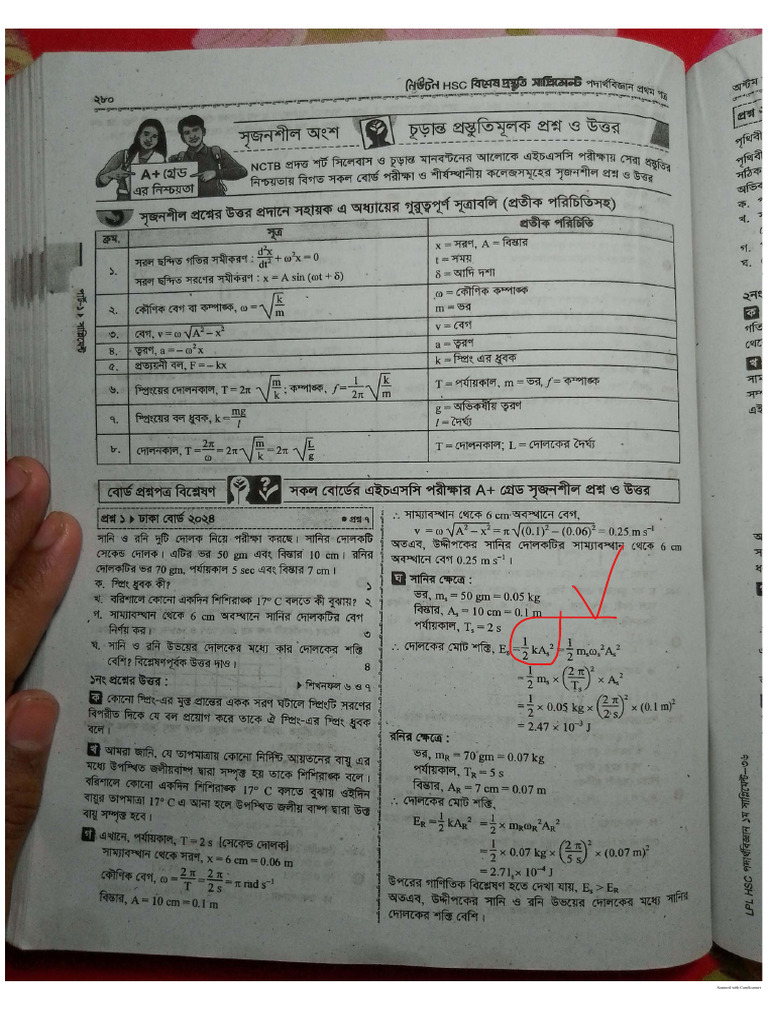 ২৮০
নিউটন HSC বিশেষ প্রস্তুতি সাপ্লিমেন্ট পদার্থবিজ্ঞান প্রথম পত্র
সৃজনশীল অংশ চূড়ান্ত প্রস্তুতিমূলক প্রশ্ন ও উত্তর
A+ গ্রেড
এর নিশ্চয়তা
NCTB প্রদত্ত শর্ট সিলেবাস ও চূড়ান্ত মানবন্টনের আলোকে এইচএসসি পরীক্ষায় সেরা প্রস্তুতির
নিশ্চয়তায় বিগত সকল বোর্ড পরীক্ষা ও শীর্ষস্থানীয় কলেজসমূহের সৃজনশীল প্রশ্ন ও উত্তর
সৃজনশীল প্রশ্নের উত্তর প্রদানে সহায়ক এ অধ্যায়ের গুরুত্বপূর্ণ সূত্রাবলি (প্রতীক পরিচিতিসহ)
ক্রম. সূত্র প্রতীক পরিচিতি
১. সরল ছন্দিত গতির সমীকরণ : d²x/dt² + ω²x = 0
সরল ছন্দিত সরণের সমীকরণ : x = A sin (ωt + δ)
x = সরণ, A = বিস্তার
t = সময়
δ = আদি দশা
২. কৌণিক বেগ বা কম্পাঙ্ক, ω = √(k/m)
ω = কৌণিক কম্পাঙ্ক
m = ভর
৩. বেগ, v = ω √(A² – x²) v = বেগ
৪. ত্বরণ, a = – ω² x a = ত্বরণ
৫. প্রত্যয়নী বল, F = – kx k = স্প্রিং এর ধ্রুবক
৬. স্প্রিংয়ের দোলনকাল, T = 2π √(m/k) ; কম্পাঙ্ক, f = 1/2π √(k/m) T = পর্যায়কাল, m = ভর, f = কম্পাঙ্ক
৭. স্প্রিংয়ের বল ধ্রুবক, k = mg/l
g = অভিকর্ষীয় ত্বরণ
l = দৈর্ঘ্য
৮. দোলনকাল, T = 2π/ω = 2π √(m/k) = 2π √(L/g) T = দোলনকাল; L = দোলকের দৈর্ঘ্য
বোর্ড প্রশ্নপত্র বিশ্লেষণ সকল বোর্ডের এইচএসসি পরীক্ষার A+ গ্রেড সৃজনশীল প্রশ্ন ও উত্তর
প্রশ্ন ১ ▸ ঢাকা বোর্ড ২০২৪ ● প্রশ্ন ৭
সানি ও রনি দুটি দোলক নিয়ে পরীক্ষা করছে। সানির দোলকটি
সেকেন্ড দোলক। এটির ভর 50 gm এবং বিস্তার 10 cm। রনির
দোলকটির ভর 70 gm, পর্যায়কাল 5 sec এবং বিস্তার 7 cm।
ক. স্প্রিং ধ্রুবক কী? ১
খ. বরিশালে কোনো একদিন শিশিরাঙ্ক 17° C বলতে কী বুঝায়? ২
গ. সাম্যাবস্থান থেকে 6 cm অবস্থানে সানির দোলকটির বেগ
নির্ণয় কর। ৩
ঘ. সানি ও রনি উভয়ের দোলকের মধ্যে কার দোলকের শক্তি
বেশি? বিশ্লেষণপূর্বক উত্তর দাও। ৪
১নং প্রশ্নের উত্তর : ▸ শিখনফল ৬ ও ৭
ক কোনো স্প্রিং-এর মুক্ত প্রান্তের একক সরণ ঘটালে স্প্রিংটি সরণের
বিপরীত দিকে যে বল প্রয়োগ করে তাকে ঐ স্প্রিং-এর স্প্রিং ধ্রুবক
বলে।
খ আমরা জানি, যে তাপমাত্রায় কোনো নির্দিষ্ট আয়তনের বায়ু এর
মধ্যে উপস্থিত জলীয়বাষ্প দ্বারা সম্পৃক্ত হয় তাকে শিশিরাঙ্ক বলে।
বরিশালে কোনো একদিন শিশিরাঙ্ক 17° C বলতে বুঝায় ওইদিন
বায়ুর তাপমাত্রা 17° C এ আনা হলে উপস্থিত জলীয় বাষ্প দ্বারা উক্ত
বায়ু সম্পৃক্ত হবে।
গ এখানে, পর্যায়কাল, T = 2 s [সেকেন্ড দোলক]
সাম্যাবস্থান থেকে সরণ, x = 6 cm = 0.06 m
কৌণিক বেগ, ω = 2π/T = 2π/2 s = π rad s⁻¹
বিস্তার, A = 10 cm = 0.1 m
∴ সাম্যাবস্থান থেকে 6 cm অবস্থানে বেগ,
v = ω √(A² – x²) = π √((0.1)² – (0.06)²) = 0.25 m s⁻¹
অতএব, উদ্দীপকের সানির দোলকটির সাম্যাবস্থান থেকে 6 cm
অবস্থানে বেগ 0.25 m s⁻¹।
ঘ সানির ক্ষেত্রে :
ভর, mₛ = 50 gm = 0.05 kg
বিস্তার, Aₛ = 10 cm = 0.1 m
পর্যায়কাল, Tₛ = 2 s
∴ দোলকের মোট শক্তি, Eₛ = 1/2 kAₛ² = 1/2 mₛωₛ²Aₛ²
= 1/2 mₛ × (2π/Tₛ)² × Aₛ²
= 1/2 × 0.05 kg × (2π/2 s)² × (0.1 m)²
= 2.47 × 10⁻³ J
রনির ক্ষেত্রে :
ভর, m_R = 70 gm = 0.07 kg
পর্যায়কাল, T_R = 5 s
বিস্তার, A_R = 7 cm = 0.07 m
∴ দোলকের মোট শক্তি,
E_R = 1/2 kA_R² = 1/2 × m_Rω_R²A_R²
= 1/2 × 0.07 kg × (2π/5 s)² × (0.07 m)²
= 2.71 × 10⁻⁴ J
উপরের গাণিতিক বিশ্লেষণ হতে দেখা যায়, Eₛ > E_R
অতএব, উদ্দীপকের সানি ও রনি উভয়ের দোলকের মধ্যে সানির
দোলকের শক্তি বেশি।
LPL HSC পদার্থবিজ্ঞান ১ম সাপ্লিমেন্ট—৩৬
Scanned with CamScanner